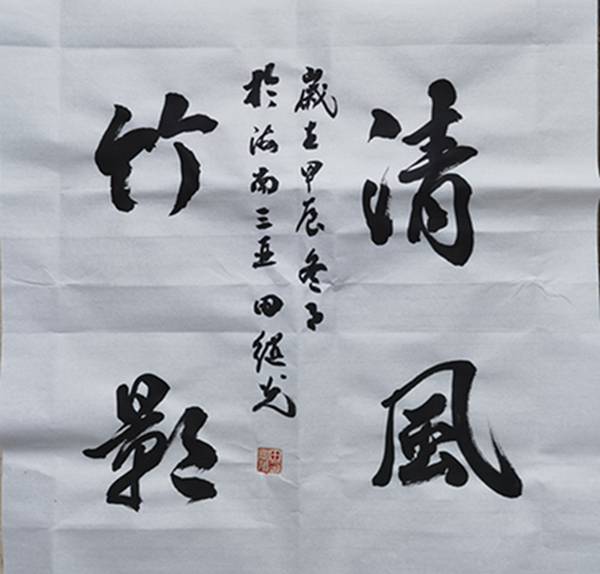 清風
歲在甲辰冬月
於海南三亞田继光
竹影